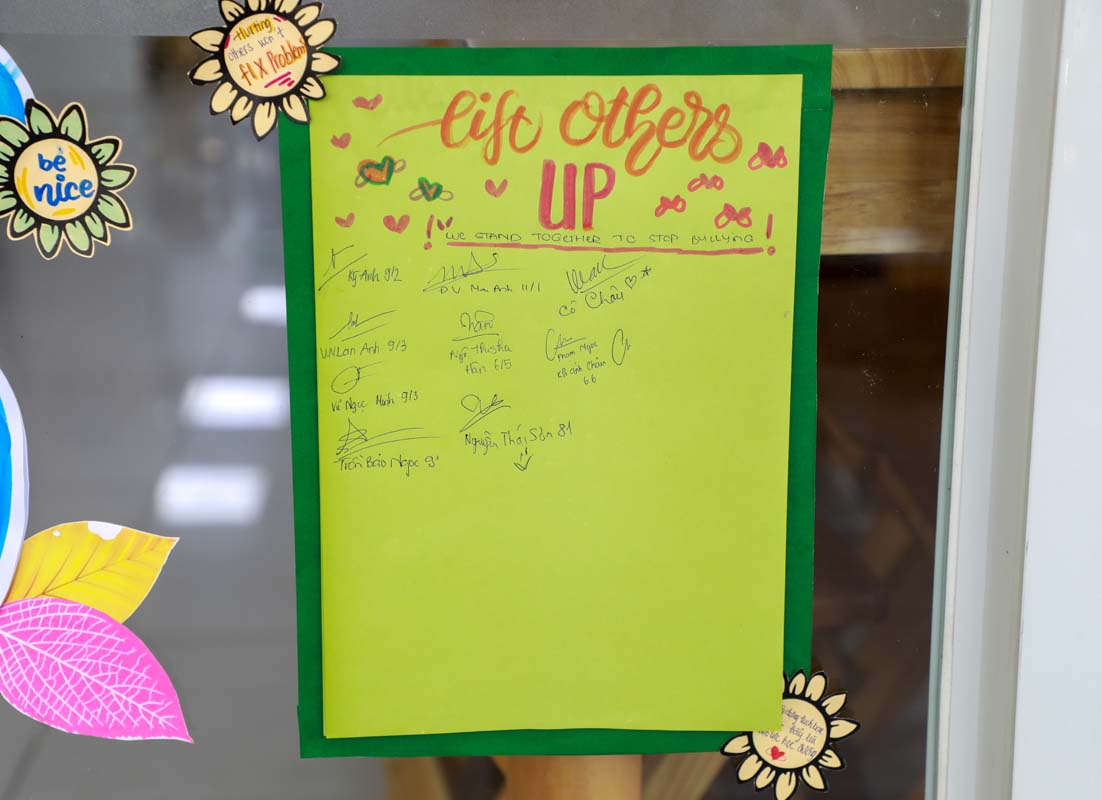 Hurting
others won't
fix Problem
be
nice
lift others
UP
WE STAND TOGETHER TO STOP BULLYING
Kỳ Anh 9/2
Đ.V. Mai Anh 11/1
Cô Châu
V.N Lan Anh 9/3
Hân
Ngô Thị
Hân 6/5
Phạm Ngọc
Khánh Châm
66
Vũ Ngọc Minh 9/3
Nguyễn Thái Sơn 81
Trần Bảo Ngọc 9